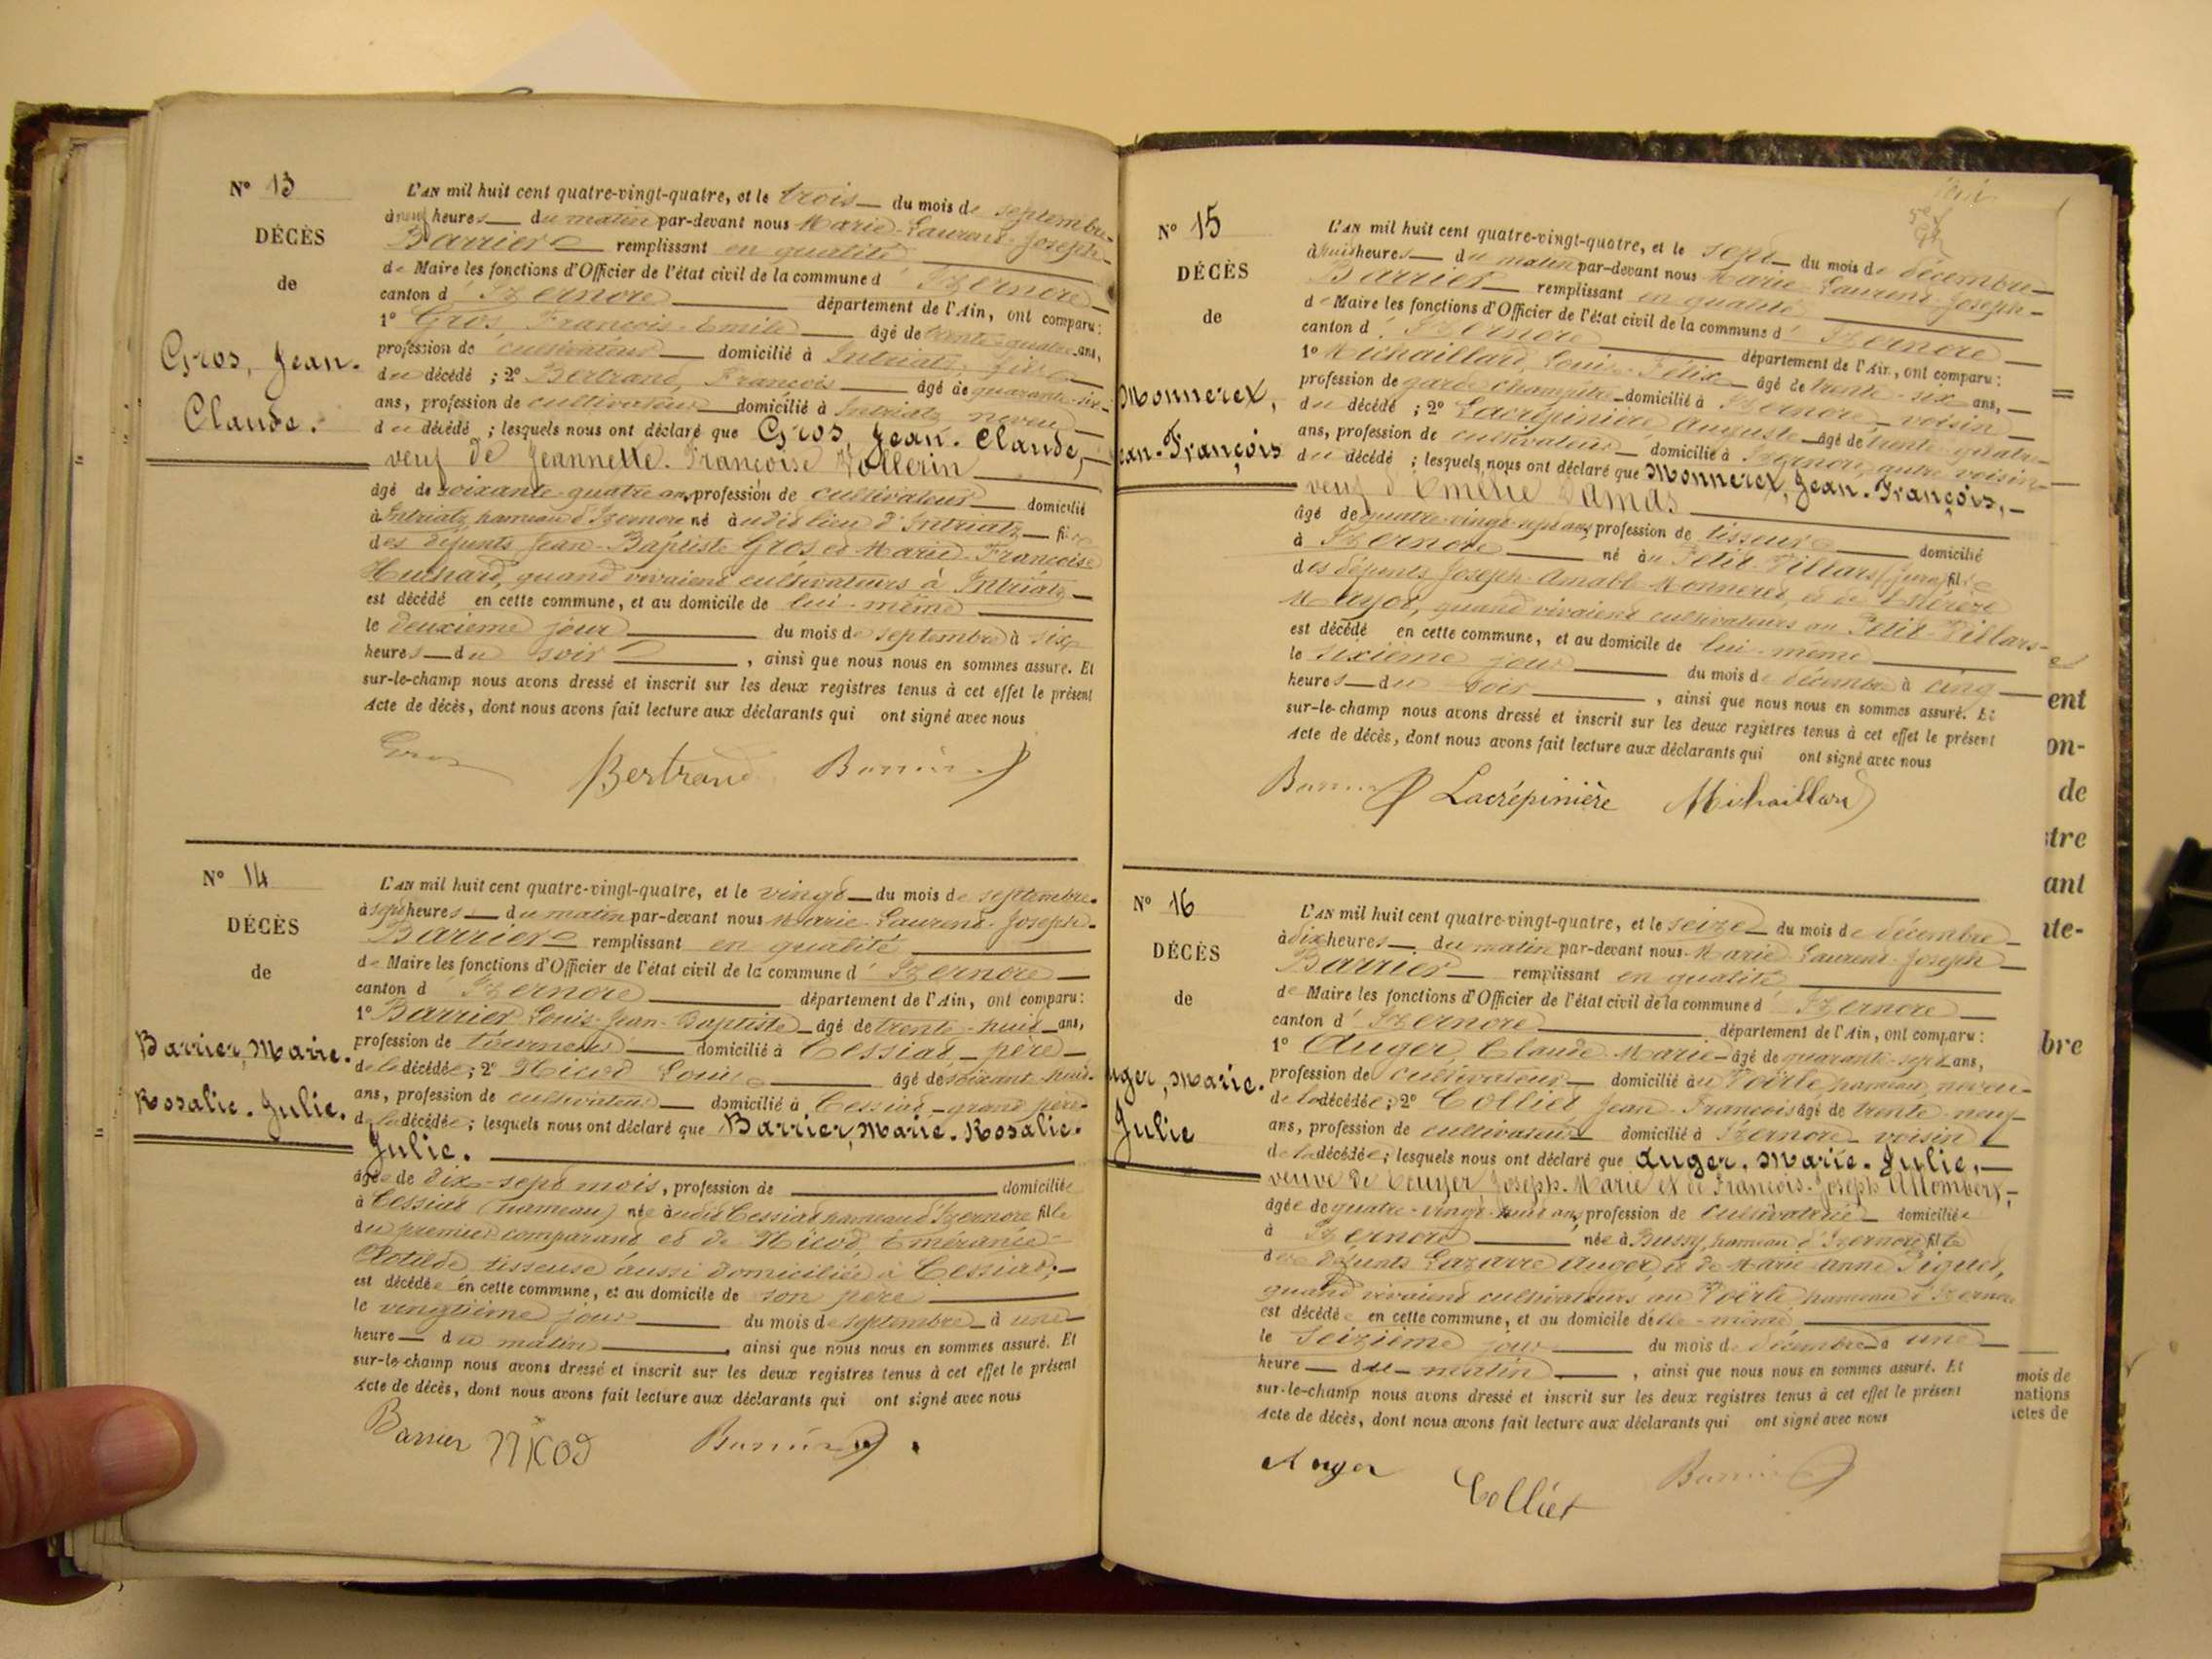 N° 13
DÉCÈS
de
Gros, Jean.
Claude.
L'AN mil huit cent quatre-vingt-quatre, et le trois du mois de septembre
à neuf heures du matin par-devant nous Marie-Laurent-Joseph-
Barrier remplissant en qualité
de Maire les fonctions d'Officier de l'état civil de la commune d'Izernore
canton d'Izernore département de l'Ain, ont comparu :
1° Gros, François-Emile âgé de trente-quatre ans,
profession de cultivateur domicilié à Intriatz, fils
du décédé ; 2° Bertrand, François âgé de quarante-six
ans, profession de cultivateur domicilié à Intriatz neveu
du décédé ; lesquels nous ont déclaré que Gros, Jean. Claude,
veuf de Jeannette. Françoise Vollerin
âgé de soixante-quatre ans, profession de cultivateur domicilié
à Intriatz, hameau d'Izernore né audit lieu d'Intriatz fils
des défunts Jean-Baptiste Gros et Marie-Françoise
quand vivaient cultivateurs à Intriatz
est décédé en cette commune, et au domicile de lui-même
le deuxième jour du mois de septembre à six
heures du soir, ainsi que nous nous en sommes assuré. Et
sur-le-champ nous avons dressé et inscrit sur les deux registres tenus à cet effet le présent
Acte de décès, dont nous avons fait lecture aux déclarants qui ont signé avec nous
Gros Bertrand Barrier
N° 14
DÉCÈS
de
Barrier, Marie.
Rosalie. Julie.
L'AN mil huit cent quatre-vingt-quatre, et le vingt du mois de septembre
à sept heures du matin par-devant nous Marie-Laurent-Joseph-
Barrier remplissant en qualité
de Maire les fonctions d'Officier de l'état civil de la commune d'Izernore
canton d'Izernore département de l'Ain, ont comparu :
1° Barrier Louis-Jean-Baptiste âgé de trente-huit ans,
profession de tourneur domicilié à Cessiat père
de la décédée ; 2° Nicod Louis âgé de soixante-huit
ans, profession de cultivateur domicilié à Cessiat grand père
de la décédée ; lesquels nous ont déclaré que Barrier, Marie. Rosalie.
Julie.
âgée de dix-sept mois, profession de domiciliée
à Cessiat (hameau) née audit Cessiat hameau d'Izernore fille
du premier comparant et de Nicod Emérancie-
Clotilde tisseuse aussi domiciliée à Cessiat,
est décédée en cette commune, et au domicile de son père
le vingtième jour du mois de septembre à une
heure du matin, ainsi que nous nous en sommes assuré. Et
sur-le-champ nous avons dressé et inscrit sur les deux registres tenus à cet effet le présent
Acte de décès, dont nous avons fait lecture aux déclarants qui ont signé avec nous
Barrier Nicod Barrier
N° 15
DÉCÈS
de
Monneret,
ean-François
L'AN mil huit cent quatre-vingt-quatre, et le sept du mois de décembre
à huit heures du matin par-devant nous Marie-Laurent-Joseph-
Barrier remplissant en qualité
de Maire les fonctions d'Officier de l'état civil de la commune d'Izernore
canton d'Izernore département de l'Ain, ont comparu :
1° Michaillard, Louis-Félix âgé de trente-six ans,
profession de garde champêtre domicilié à Izernore voisin
du décédé ; 2° Lacrépinière Auguste âgé de trente-quatre
ans, profession de cultivateur domicilié à Izernore, autre voisin
du décédé ; lesquels nous ont déclaré que Monneret, Jean. François,
veuf d'Emélie Damas
âgé de quatre-vingt-sept ans, profession de tisseur domicilié
à Izernore né au Petit-Villars (Jura) fils
des défunts Joseph-Amable Monneret, et de Thérèze
Mayot, quand vivaient cultivateurs au Petit-Villars
est décédé en cette commune, et au domicile de lui-même
le sixième jour du mois de décembre à cinq
heures du soir, ainsi que nous nous en sommes assuré. Et
sur-le-champ nous avons dressé et inscrit sur les deux registres tenus à cet effet le présent
Acte de décès, dont nous avons fait lecture aux déclarants qui ont signé avec nous
Barrier Lacrépinière Michaillard
N° 16
DÉCÈS
de
uger, Marie.
Julie
L'AN mil huit cent quatre-vingt-quatre, et le seize du mois de décembre
à dix heures du matin par-devant nous Marie-Laurent-Joseph
Barrier remplissant en qualité
de Maire les fonctions d'Officier de l'état civil de la commune d'Izernore
canton d'Izernore département de l'Ain, ont comparu :
1° Auger, Claude-Marie âgé de quarante-sept ans,
profession de cultivateur domicilié au Voërle, hameau, neveu
de la décédée ; 2° Colliet Jean-François âgé de trente-neuf
ans, profession de cultivateur domicilié à Izernore voisin
de la décédée ; lesquels nous ont déclaré que Auger, Marie. Julie,
veuve de Touyer, Joseph. Marie et de François-Joseph Allombert,
âgée de quatre-vingt-huit ans, profession de cultivatrice domiciliée
à Izernore née à Bussy, hameau d'Izernore fille
des défunts Lazarre Auger, et de Marie-Anne Piquet,
quand vivaient cultivateurs au Voërle hameau d'Izernore
est décédée en cette commune, et au domicile d'elle-même
le seizième jour du mois de décembre à une
heure du matin, ainsi que nous nous en sommes assuré. Et
sur-le-champ nous avons dressé et inscrit sur les deux registres tenus à cet effet le présent
Acte de décès, dont nous avons fait lecture aux déclarants qui ont signé avec nous
Auger Colliet Barrier
ent
on-
de
stre
ant
nte-
bre
mois de
nations
actes de